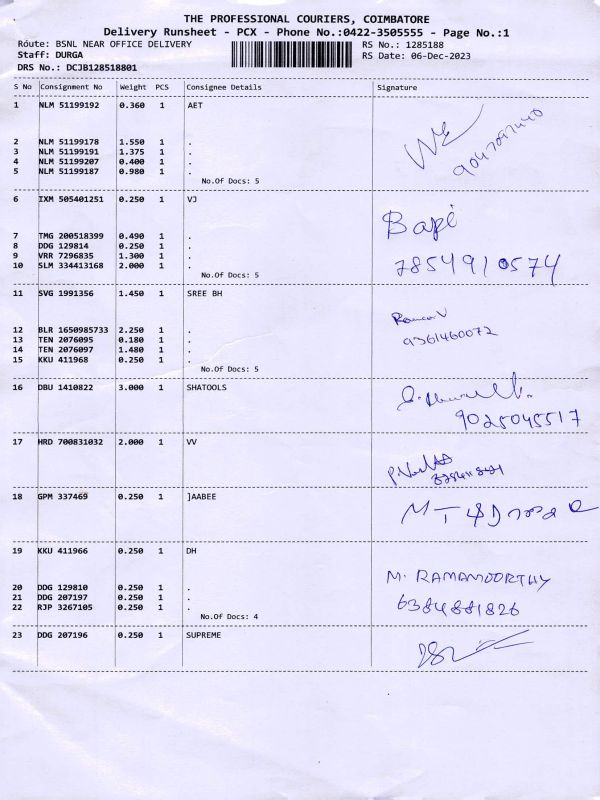 THE PROFESSIONAL COURIERS, COIMBATORE
Delivery Runsheet - PCX - Phone No.:0422-3505555 - Page No.:1
Route: BSNL NEAR OFFICE DELIVERY RS No.: 1285188
Staff: DURGA RS Date: 06-Dec-2023
DRS No.: DCJB128518801
S No Consignment No Weight PCS Consignee Details Signature
1 NLM 51199192 0.360 1 AET
2 NLM 51199178 1.550 1 .
3 NLM 51199191 1.375 1 .
4 NLM 51199207 0.400 1 .
5 NLM 51199187 0.980 1 .
No.Of Docs: 5
6 IXM 505401251 0.250 1 VJ
Bapi
7 TMG 200518399 0.490 1 .
8 DDG 129814 0.250 1 .
9 VRR 7296835 1.300 1 .
7854910574
10 SLM 334413168 2.000 1 .
No.Of Docs: 5
11 SVG 1991356 1.450 1 SREE BH
12 BLR 1650985733 2.250 1 .
9361460072
13 TEN 2076095 0.180 1 .
14 TEN 2076097 1.480 1 .
15 KKU 411968 0.250 1 .
No.Of Docs: 5
16 DBU 1410822 3.000 1 SHATOOLS
9025045517
17 HRD 700831032 2.000 1 VV
18 GPM 337469 0.250 1 ]AABEE
19 KKU 411966 0.250 1 DH
M. RAMAMOORTHY
20 DDG 129810 0.250 1 .
21 DDG 207197 0.250 1 .
6384881826
22 RJP 3267105 0.250 1 .
No.Of Docs: 4
23 DDG 207196 0.250 1 SUPREME